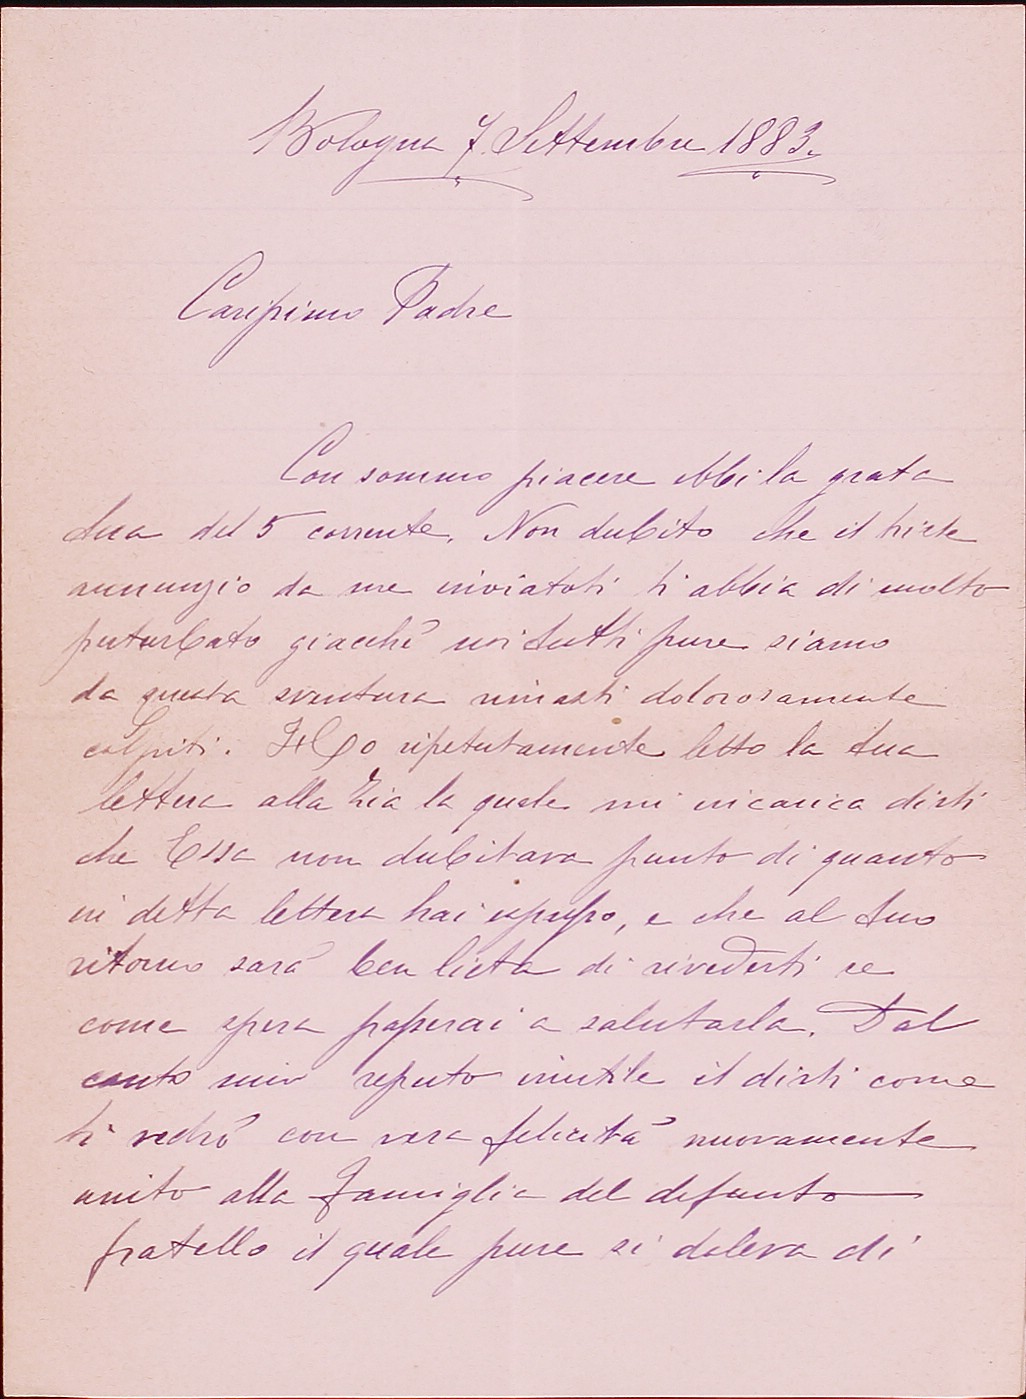 Bologna 7 Settembre 1883.
Carissimo Padre
Con sommo piacere ebbi la grata
tua del 5 corrente. Non dubito che il triste
annunzio da me inviatoti ti abbia di molto
perturbato giacchè noi tutti pure siamo
da questa sventura rimasti dolorosamente
colpiti. Ho ripetutamente letto la tua
lettera alla Zia la quale mi incarica dirti
che Essa non dubitava punto di quanto
in detta lettera hai espresso, e che al tuo
ritorno sarà ben lieta di rivederti se
come spera passerai a salutarla. Dal
canto mio reputo inutile il dirti come
ti vedrò con vera felicità nuovamente
unito alla famiglia del defunto
fratello il quale pure si doleva di